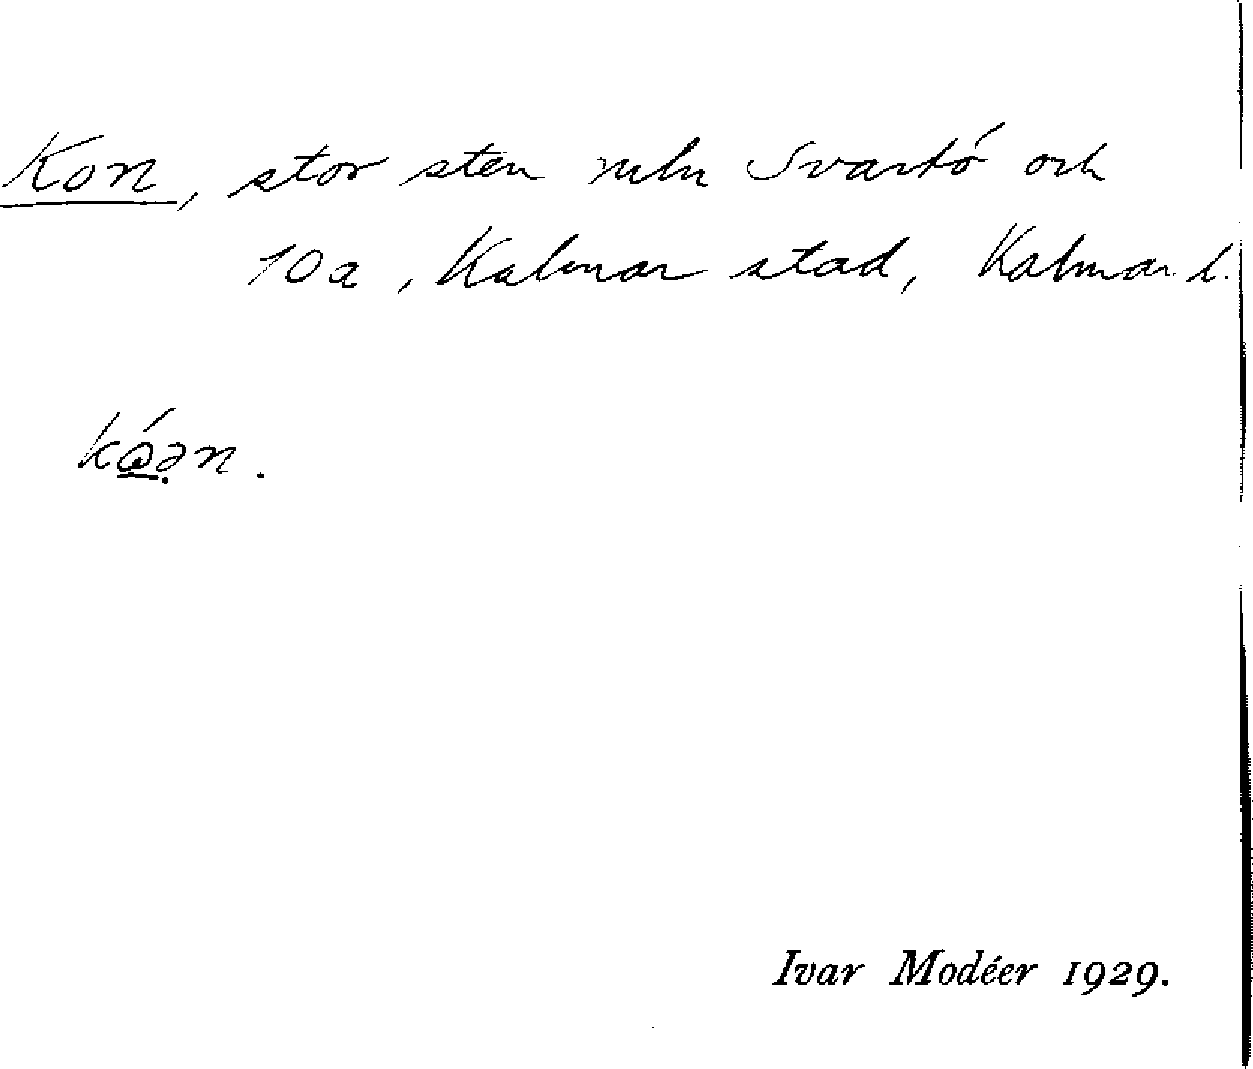 Kon, stor sten meln Svartö och
10a, Kalmar stad, Kalmar l.
kóən.
Ivar Modéer 1929.